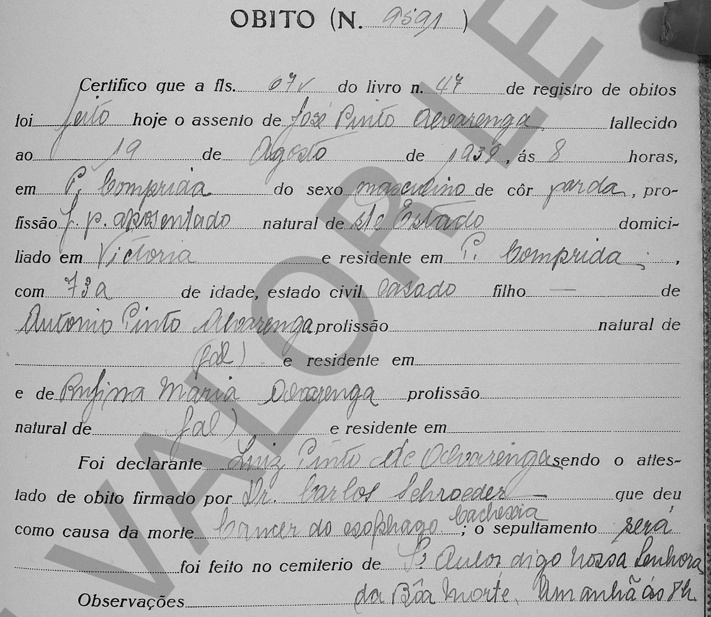 OBITO (N. 9591)
Certifico que a fls. 67v do livro n. 47 de registro de obitos
foi feito hoje o assento de José Pinto Alvarenga fallecido
ao 19 de Agosto de 1939, ás 8 horas,
em P. Comprida do sexo masculino de côr parda, pro-
fissão f. p. aposentado natural de ste Estado domici-
liado em Victoria e residente em P. Comprida,
com 73a de idade, estado civil casado filho — de
Antonio Pinto Alvarenga profissão natural de
(fal) e residente em
e de Rufina Maria Alvarenga profissão
natural de fal) e residente em
Foi declarante Luiz Pinto de Alvarenga sendo o attes-
tado de obito firmado por Dr. Carlos Schroeder — que deu
como causa da morte Cancer do esophago Cachexia; o sepultamento será
foi feito no cemiterio de digo Nossa Senhora
Observações da Bôa Morte. Amanhã ás 8h
VALOR LEG